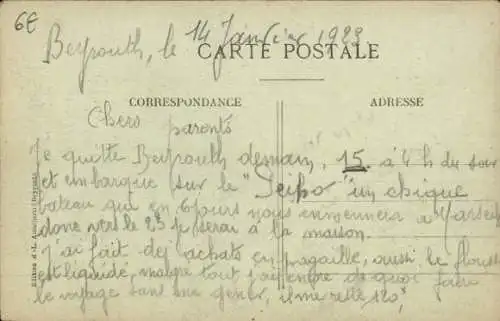 6€
Beyrouth, le 14 Janvier 1923
CARTE POSTALE
CORRESPONDANCE
ADRESSE
Chers parents
Je quitte Beyrouth demain, 15 à 4 h du soir
et embarque sur le " " un chique
bateau qui en 6 jours nous emmenera à
donc vers le 23 je serai à la maison.
J'ai fait des achats en pagaille, aussi le
est liquidé, malgré tout j'ai encore de quoi faire
le voyage sans me gener, il me reste 120